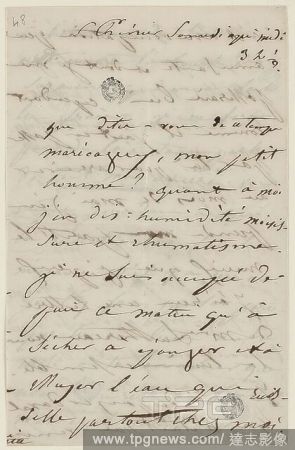 48
5 février Samedi après midi
3 h ½
que dites-vous de ce temps
marécageux, mon petit
homme ? quant à moi
j'en dis : humidité moisis-
sure et rhumatisme.
je ne suis occupée de-
puis ce matin qu'à
sécher à éponger et à
l'eau qui
partout chez moi
www.tpgnews.com / 達志影像